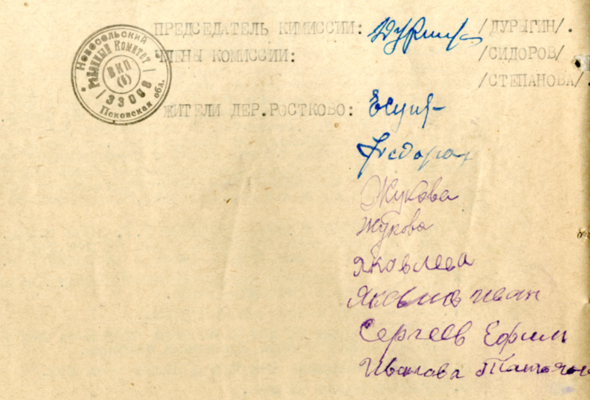 ПРЕДСЕДАТЕЛЬ КИМИССИИ: /ДУРЯГИН/.
ЧЛЕНЫ КОМИССИИ: /СИДОРОВ/
/СТЕПАНОВА/.
Новосельский Районный Комитет
ВКП
(б)
33098
Псковская обл.
ЖИТЕЛИ ДЕР.РОСТКОВО:
Жукова
Жукова
Яковлева
Иван
Сергеев Ефим
Иванова